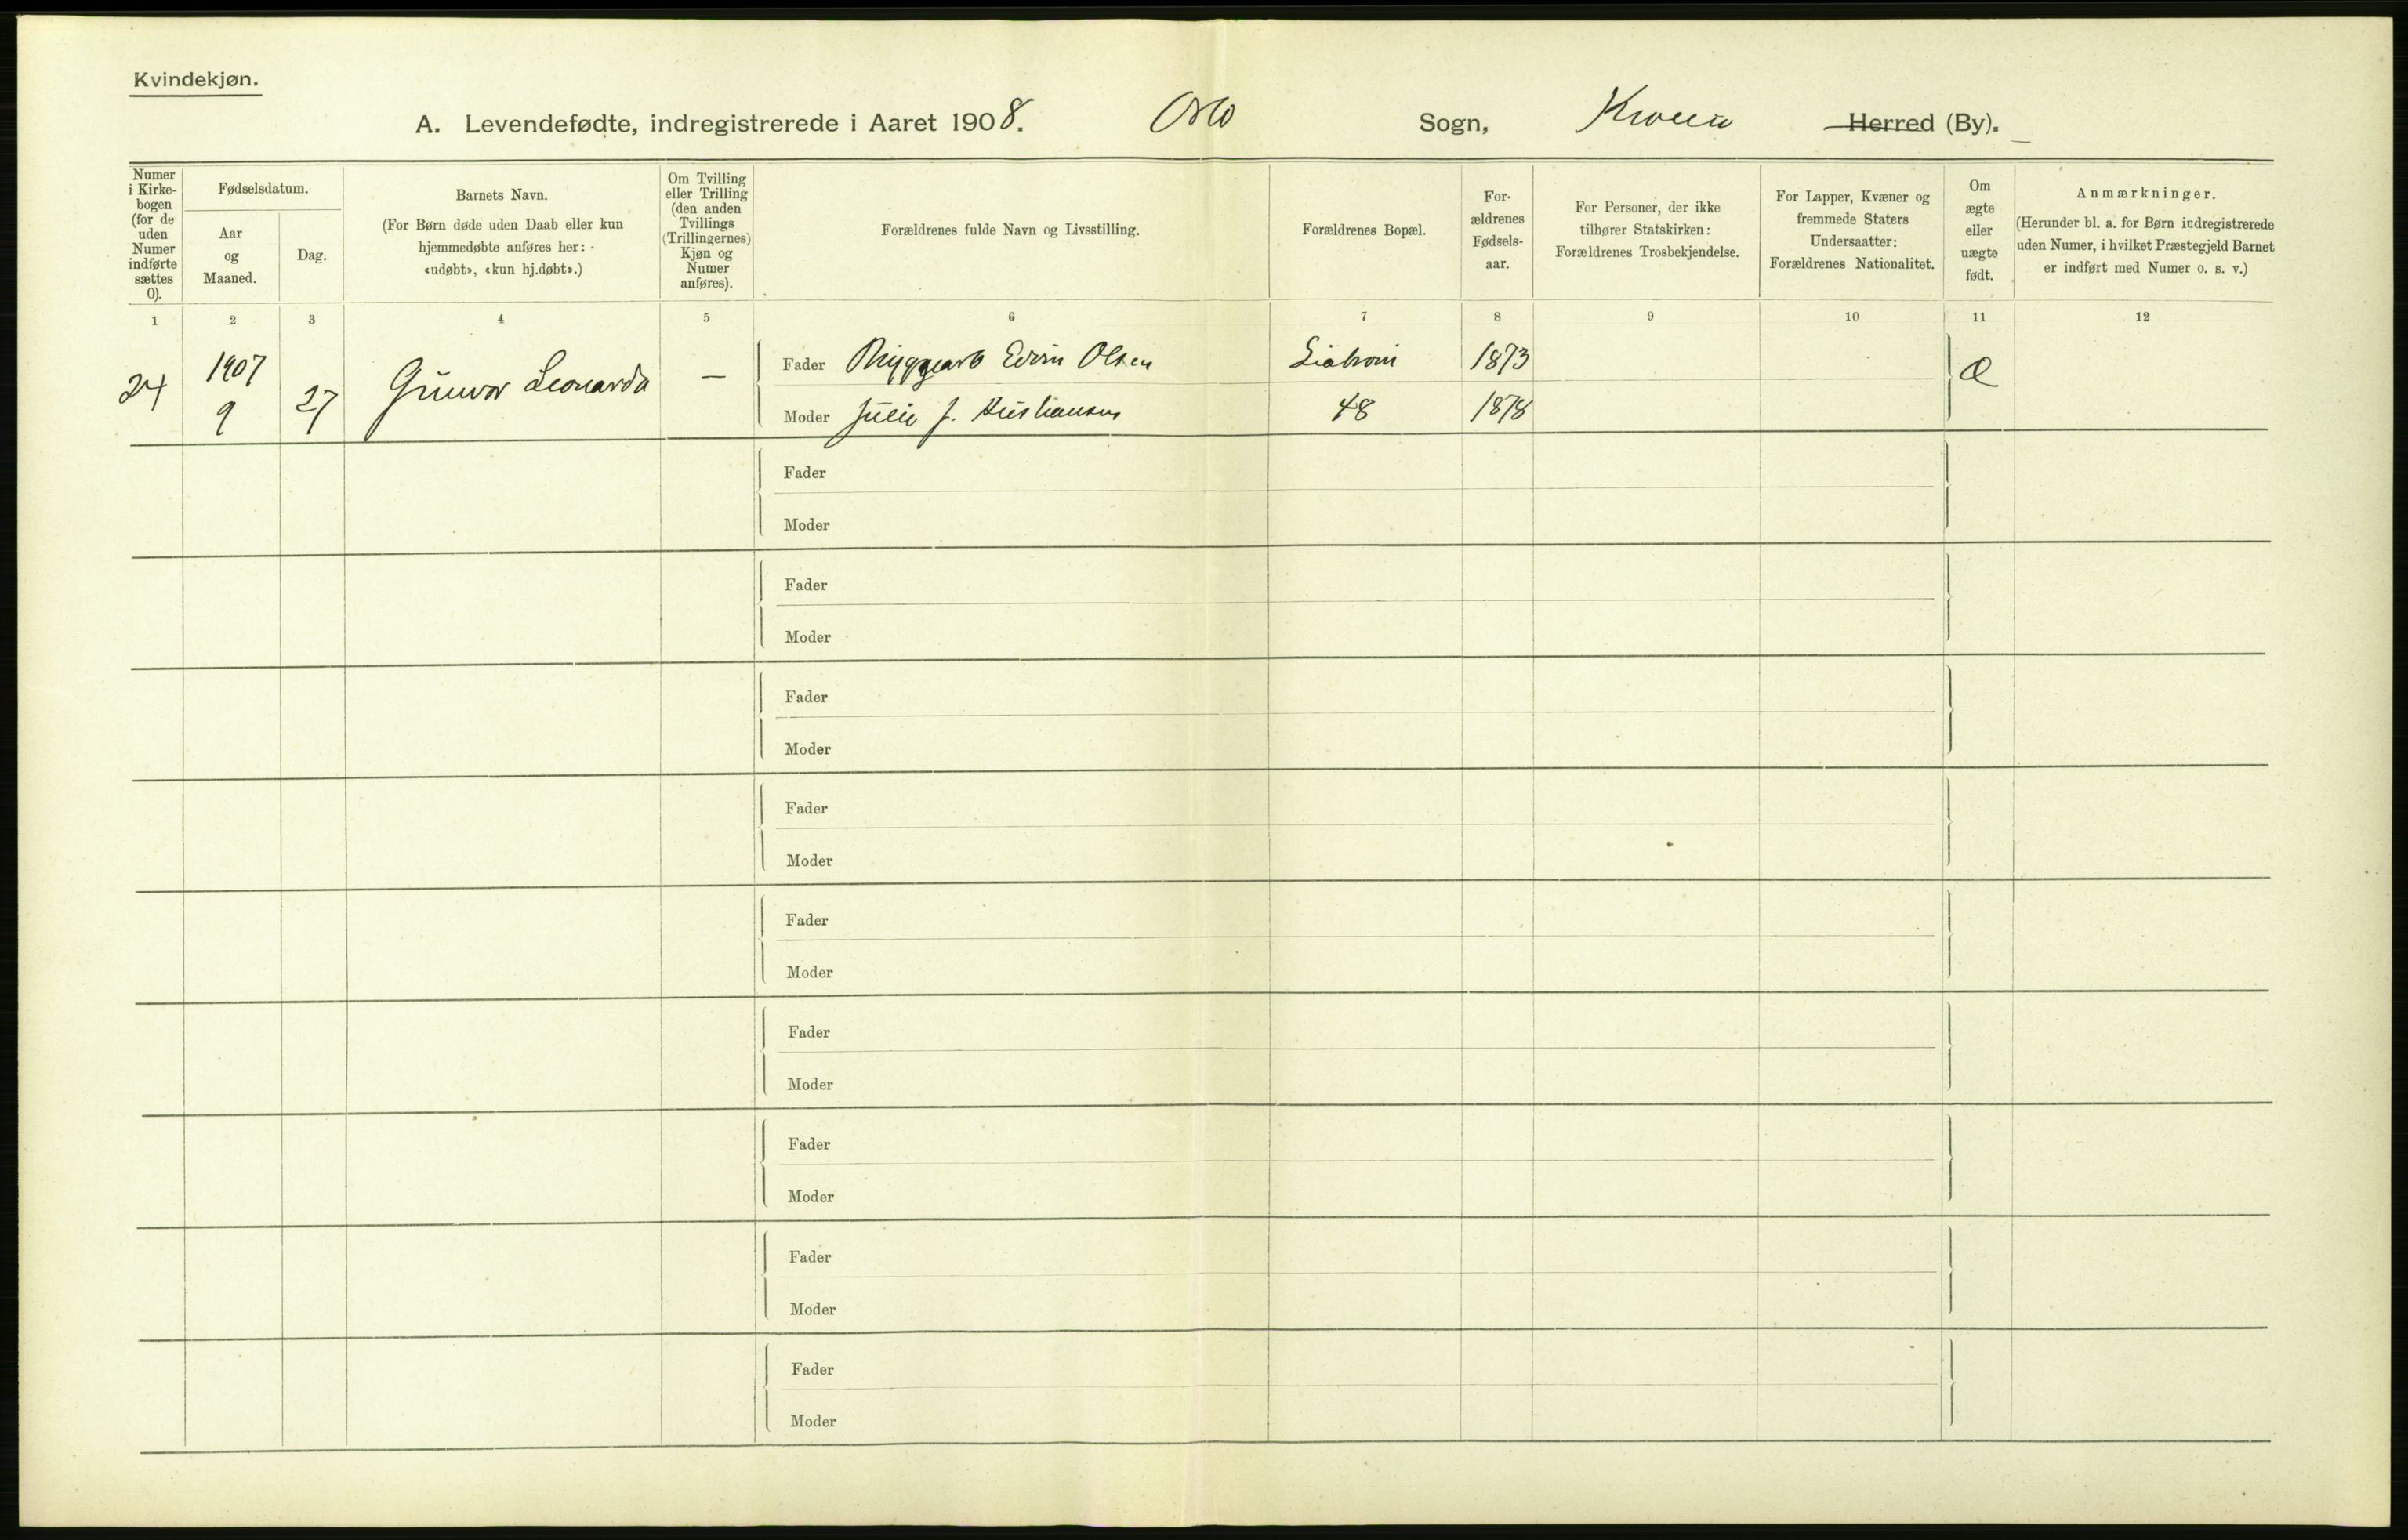 Kvindekjøn.
A. Levendefødte, indregistrerede i Aaret 1908. Oslo Sogn, Herred (By).
Numer i Kirkebogen (for de uden Numer indførte sættes 0).
Fødselsdatum.
Aar og Maaned.
Dag.
Barnets Navn.
(For Børn døde uden Daab eller kun
hjemmedøbte anføres her:
«udøbt», «kun hj.døbt».)
Om Tvilling
eller Trilling
(den anden
Tvillings
(Trillingernes)
Kjøn og
Numer
anføres).
Forældrenes fulde Navn og Livsstilling.
Forældrenes Bopæl.
For-
ældrenes
Fødsels-
aar.
For Personer, der ikke
tilhører Statskirken:
Forældrenes Trosbekjendelse.
For Lapper, Kvæner og
fremmede Staters
Undersaatter:
Forældrenes Nationalitet.
Om
ægte
eller
uægte
født.
Anmærkninger.
(Herunder bl. a. for Børn indregistrerede
uden Numer, i hvilket Præstegjeld Barnet
er indført med Numer o. s. v.)
1 2 3 4 5 6 7 8 9 10 11 12
24 1907 9 27 Gunvor Leonarda —
Fader Edvin Olsen 1873 Æ
Moder Julie J. Kristiansen 48 1878
Fader
Moder
Fader
Moder
Fader
Moder
Fader
Moder
Fader
Moder
Fader
Moder
Fader
Moder
Fader
Moder
Fader
Moder